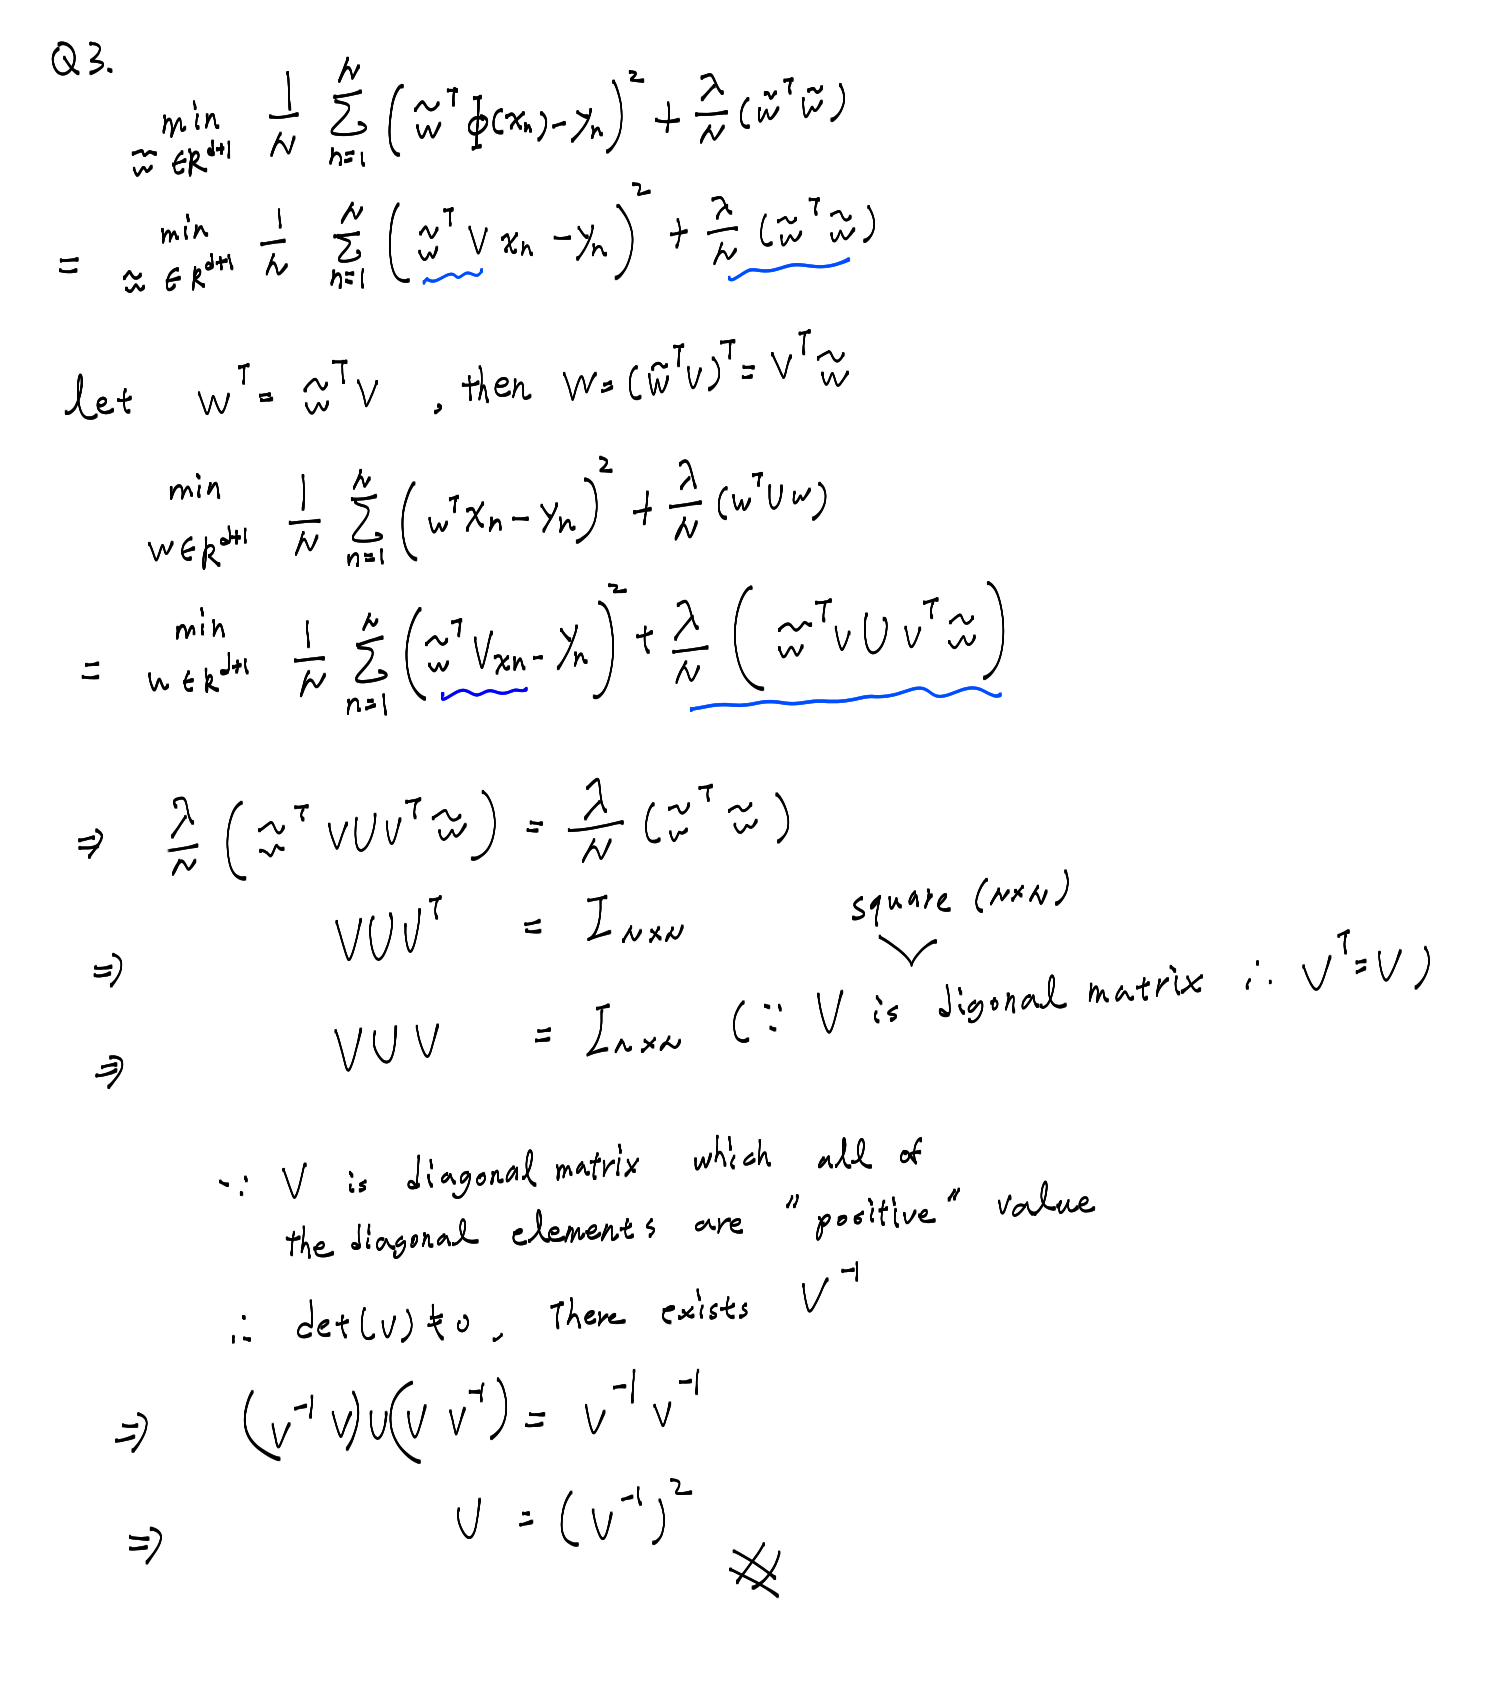 Q3.
min w̃∈R^{d+1} 1/N Σ_{n=1}^{N} (w̃^T Φ(x_n) - y_n)^2 + λ/N (w̃^T w̃)
= min w̃∈R^{d+1} 1/N Σ_{n=1}^{N} (w̃^T V x_n - y_n)^2 + λ/N (w̃^T w̃)
let w^T = w̃^T V , then w = (w̃^T V)^T = V^T w̃
min w∈R^{d+1} 1/N Σ_{n=1}^{N} (w^T x_n - y_n)^2 + λ/N (w^T U w)
= min w∈R^{d+1} 1/N Σ_{n=1}^{N} (w̃^T V x_n - y_n)^2 + λ/N (w̃^T V U V^T w̃)
⇒ λ/N (w̃^T V U V^T w̃) = λ/N (w̃^T w̃)
square (N×N)
⇒ V U V^T = I_{N×N}
⇒ V U V = I_{N×N} (∵ V is digonal matrix ∴ V^T = V)
∵ V is diagonal matrix which all of
the diagonal elements are "positive" value
∴ det(V) ≠ 0, There exists V^{-1}
⇒ (V^{-1} V) U (V V^{-1}) = V^{-1} V^{-1}
⇒ U = (V^{-1})^2
#